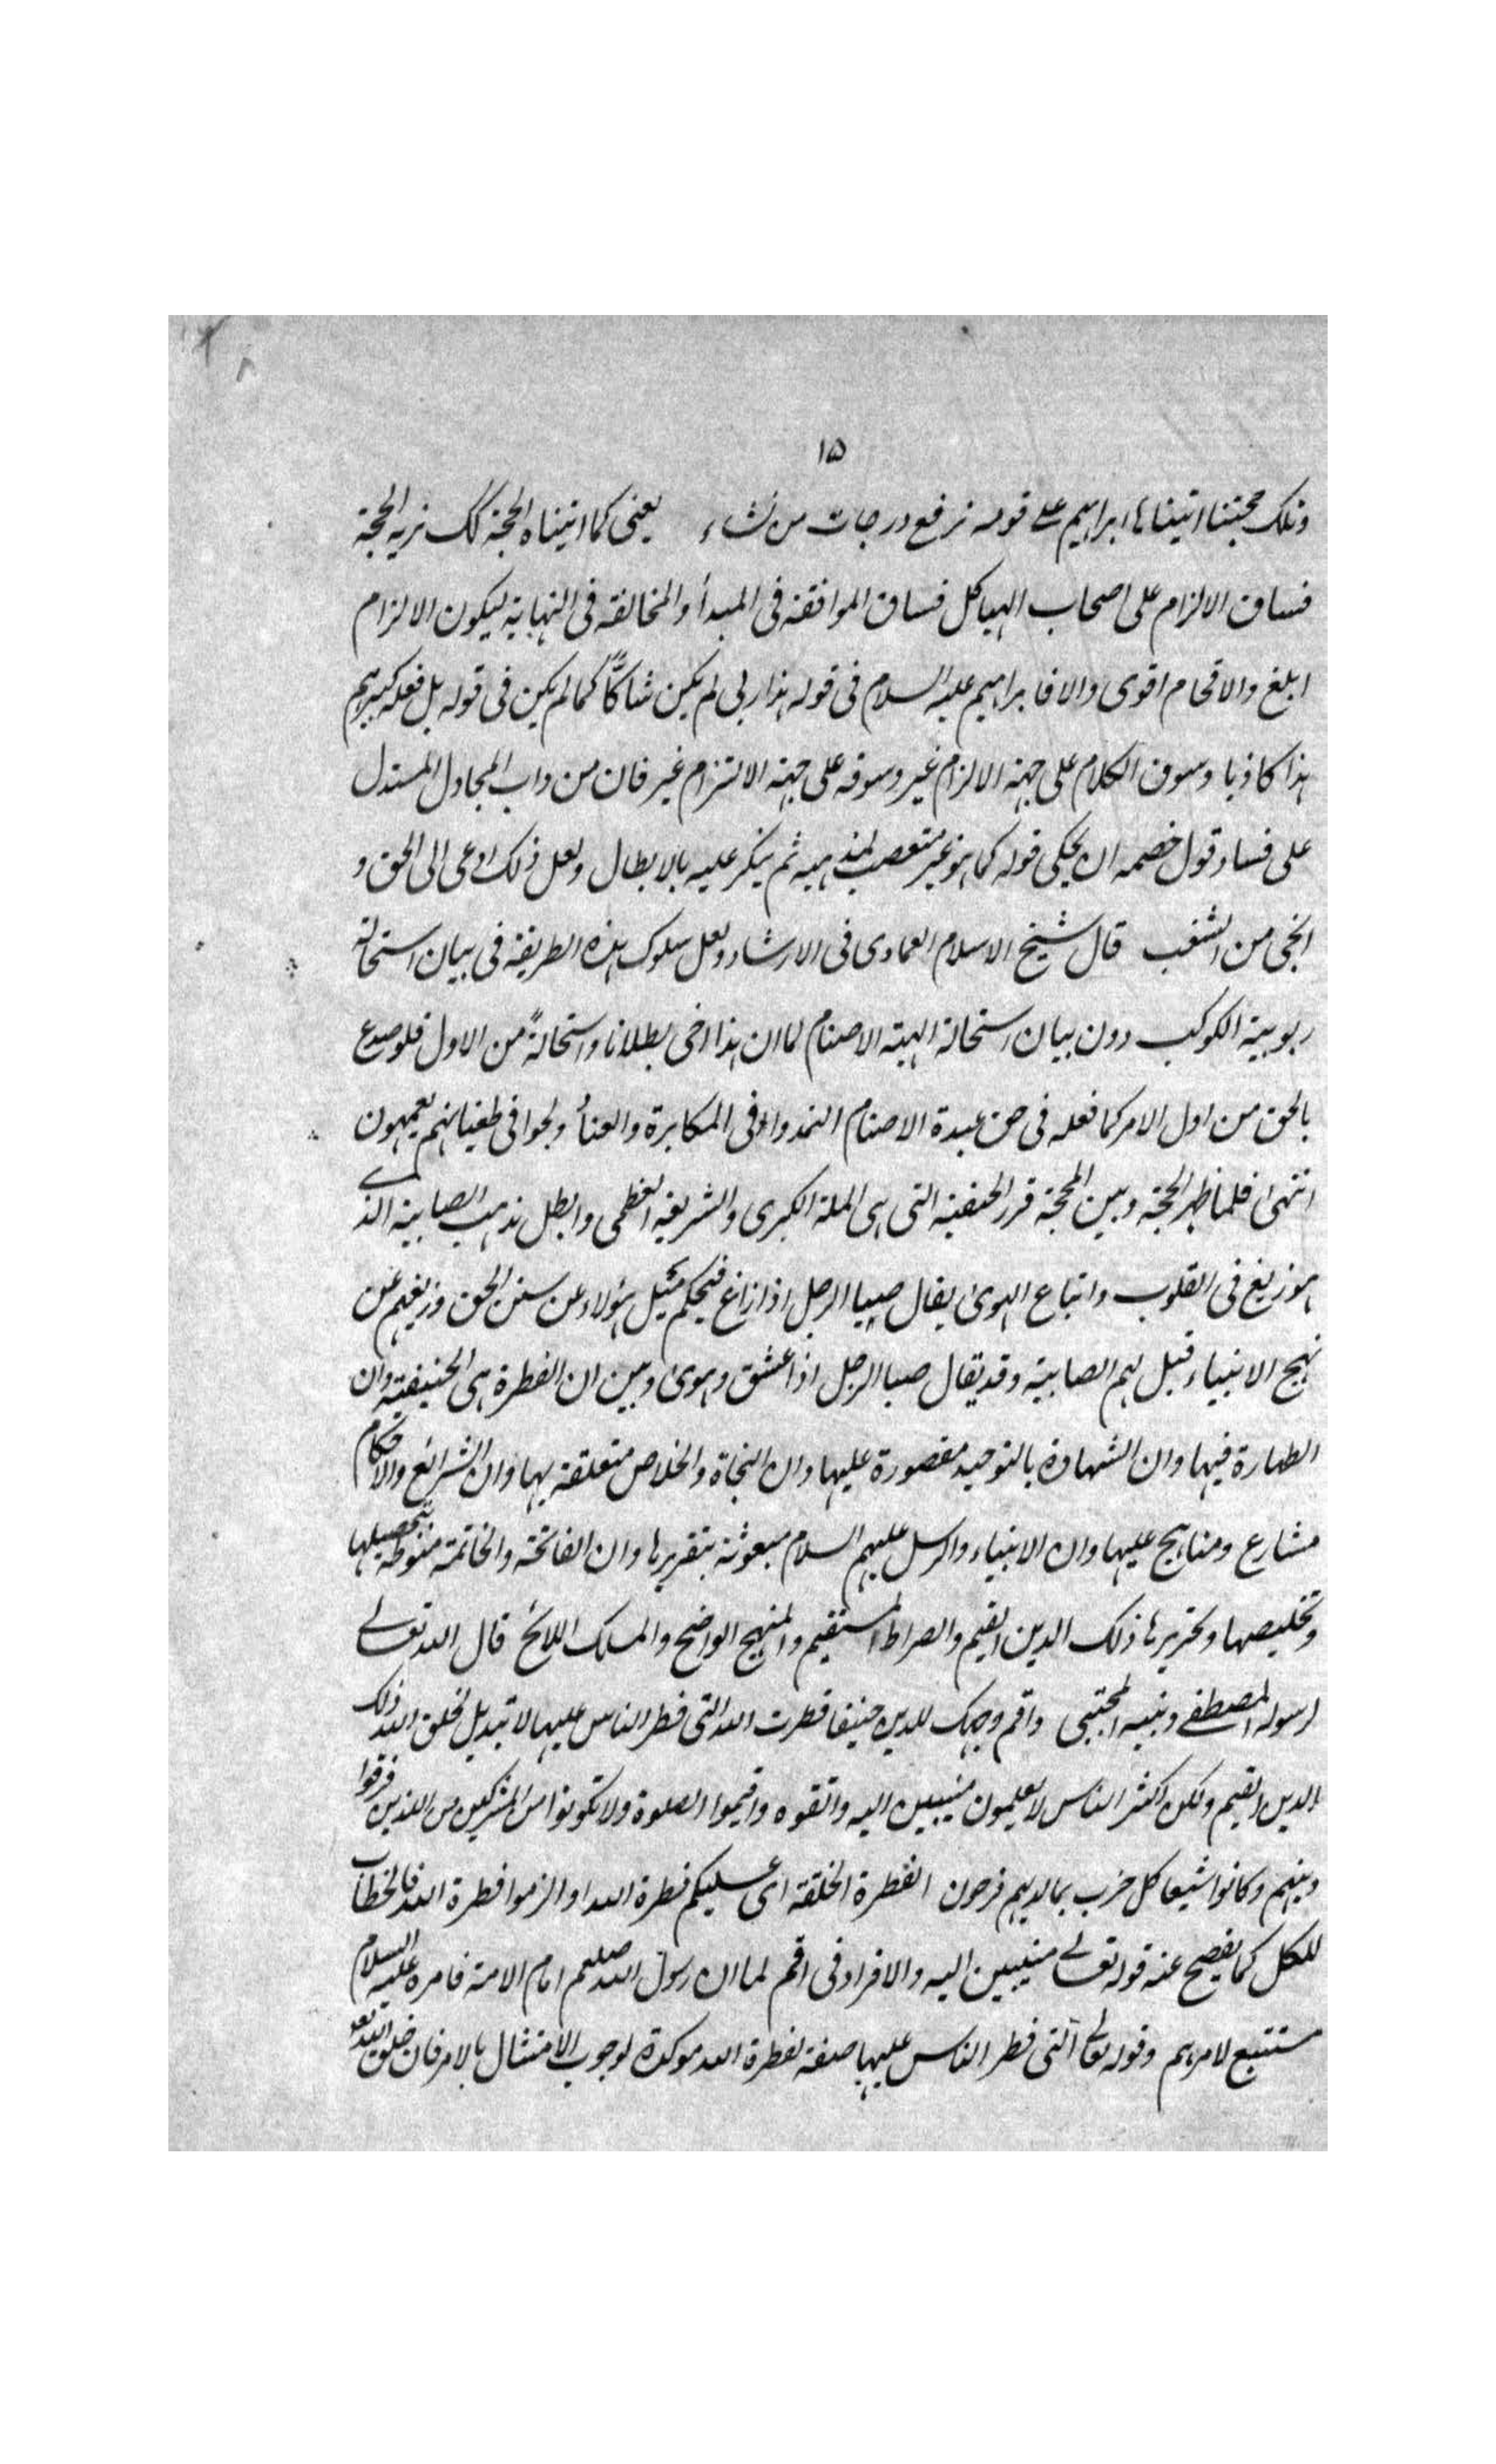 ۱۵
وتلك حجتنا اتيناها ابراهيم على قومه نرفع درجات من نشاء يعنى كما اتيناه الحجة كك نريه المحجة
فساق الالزام على اصحاب الهياكل فساق الموافقة فى المبدأ والمخالفة فى النهاية ليكون الالزام
ابلغ والافحام اقوى والا فابراهيم عليه السلام فى قوله هذا ربى لم يكن شاكًّا كما لم يكن فى قوله بل فعله كبيرهم
هذا كاذبا وسوق الكلام على جهة الالزام غير وسوقه على جهة الالتزام غير فان من داب المجادل المستدل
على فساد قول خصمه ان يحكى قوله كما هو غير متعصب لمذهبه ثم يكر عليه بالابطال ولعل ذلك ادعى الى الحق و
انجى من الشغب قال شيخ الاسلام العمادى فى الارشاد ولعل سلوك هذه الطريقة فى بيان استحالة
ربوبية الكوكب دون بيان استحالة الهية الاصنام لما ان هذا اخفى بطلانا واستحالةً من الاول فلو صدع
بالحق من اول الامر كما فعله فى حق عبدة الاصنام لتمادوا فى المكابرة والعناد ولجوا فى طغيانهم يعمهون
انتهى فلما ظهر الحجة وبين المحجة قرر الحنفية التى هى الملة الكبرى والشريعة العظمى وابطل مذهب الصابية الذى
هو زيغ فى القلوب واتباع الهوى يقال صبا الرجل اذا زاغ فبحكم ميل هؤلاء عن سنن الحق وزيغهم عن
نهج الانبياء قيل لهم الصابية وقد يقال صبا الرجل اذا عشق وهوى وبين ان الفطرة هى الحنيفية وان
الطهارة فيها وان الشهادة بالتوحيد مقصورة عليها وان النجاة والخلاص متعلقة بها وان الشرائع والاحكام
مشارع ومناهج عليها وان الانبياء والرسل عليهم السلام مبعوثة بتقريرها وان الفاتحة والخاتمة منوطة بتحصيلها
وتخليصها وتحريرها ذلك الدين القيم والصراط المستقيم والمنهج الواضح والمسلك اللائح قال الله تعالى
لرسوله المصطفى ونبيه المجتبى واقم وجهك للدين حنيفا فطرت الله التى فطر الناس عليها لا تبديل لخلق الله ذلك
الدين القيم ولكن اكثر الناس لا يعلمون منيبين اليه واتقوه واقيموا الصلوة ولا تكونوا من المشركين من الذين فرقوا
دينهم وكانوا شيعا كل حزب بما لديهم فرحون الفطرة الخلقة اى عليكم فطرة الله او الزموا فطرة الله فالخطاب
للكل كما يفصح عنه قوله تعالى منيبين اليه والافراد فى اقم لما ان رسول الله صلعم امام الامة فامره عليه السلام
مستتبع لامرهم وقوله تعالى التى فطر الناس عليها صفة لفطرة الله موكدة لوجوب الامتثال بالامر فان خلق الله تعه